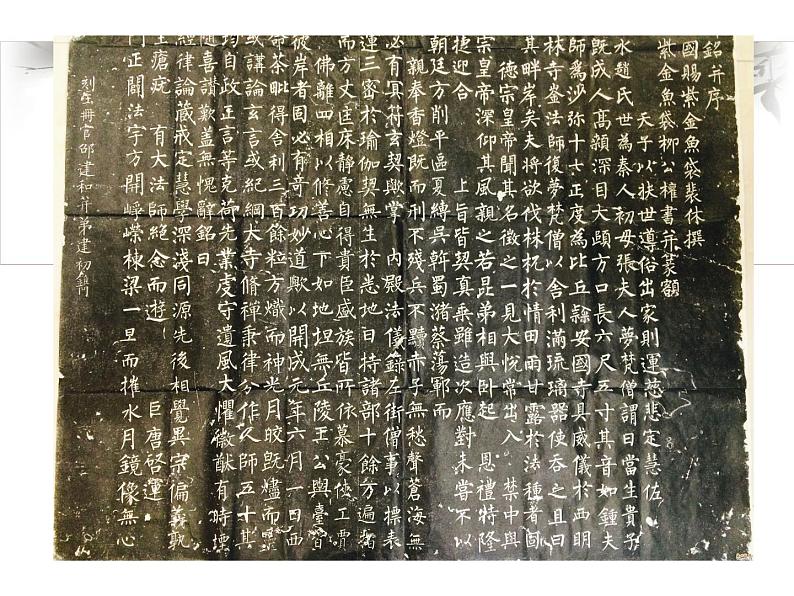 銘并序
國賜紫金魚袋裴休撰
紫金魚袋柳公權書并篆額
天子以扶世導俗出家則運慈悲定慧佐
水趙氏世為秦人初母張夫人夢梵僧謂曰當生貴子
既成人高顙深目大頤方口長六尺五寸其音如鍾夫
師為沙弥十七正度為比丘隸安國寺具威儀於西明
林寺崟法師復夢梵僧以舍利滿琉璃器使吞之且曰
其畔岸矣夫將欲伐株杌於情田雨甘露於法種者固
德宗皇帝聞其名徵之一見大悅常出入禁中與
宗皇帝深仰其風親之若昆弟相與卧起恩禮特隆
捷迎合上旨皆契真乗雖造次應對未嘗不以
朝廷方削平區夏縛吳斡蜀潴蔡蕩鄆而
親奉香燈既而刑不殘兵不黷赤子無愁聲蒼海無
必有冥符玄契歟掌内殿法儀錄左街僧事以標表
運三密於瑜伽契無生於悉地日持諸部十餘万遍指
而方丈匡床靜慮自得貴臣盛族皆所依慕豪俠工賈
佛離四相以修善心下如地坦無丘陵王公輿臺皆
彼岸者固必有奇功妙道歟以開成元年六月一日西
命茶毗得舍利三百餘粒方熾而神光月皎既燼而靈
或講論玄言或紀綱大寺脩禪秉律分作人師五十其
均自政正言等克荷先業虔守遺風大懼徽猷有時堙
隨喜讃歎盖無愧辭銘曰
經律論藏戒定慧學深淺同源先後相覺異宗偏義孰
生瘡疣有大法師絶念而遊巨唐啓運
門正闢法宇方開崢嶸棟梁一旦而摧水月鏡像無心
刻玉冊官邵建和并弟建初鐫